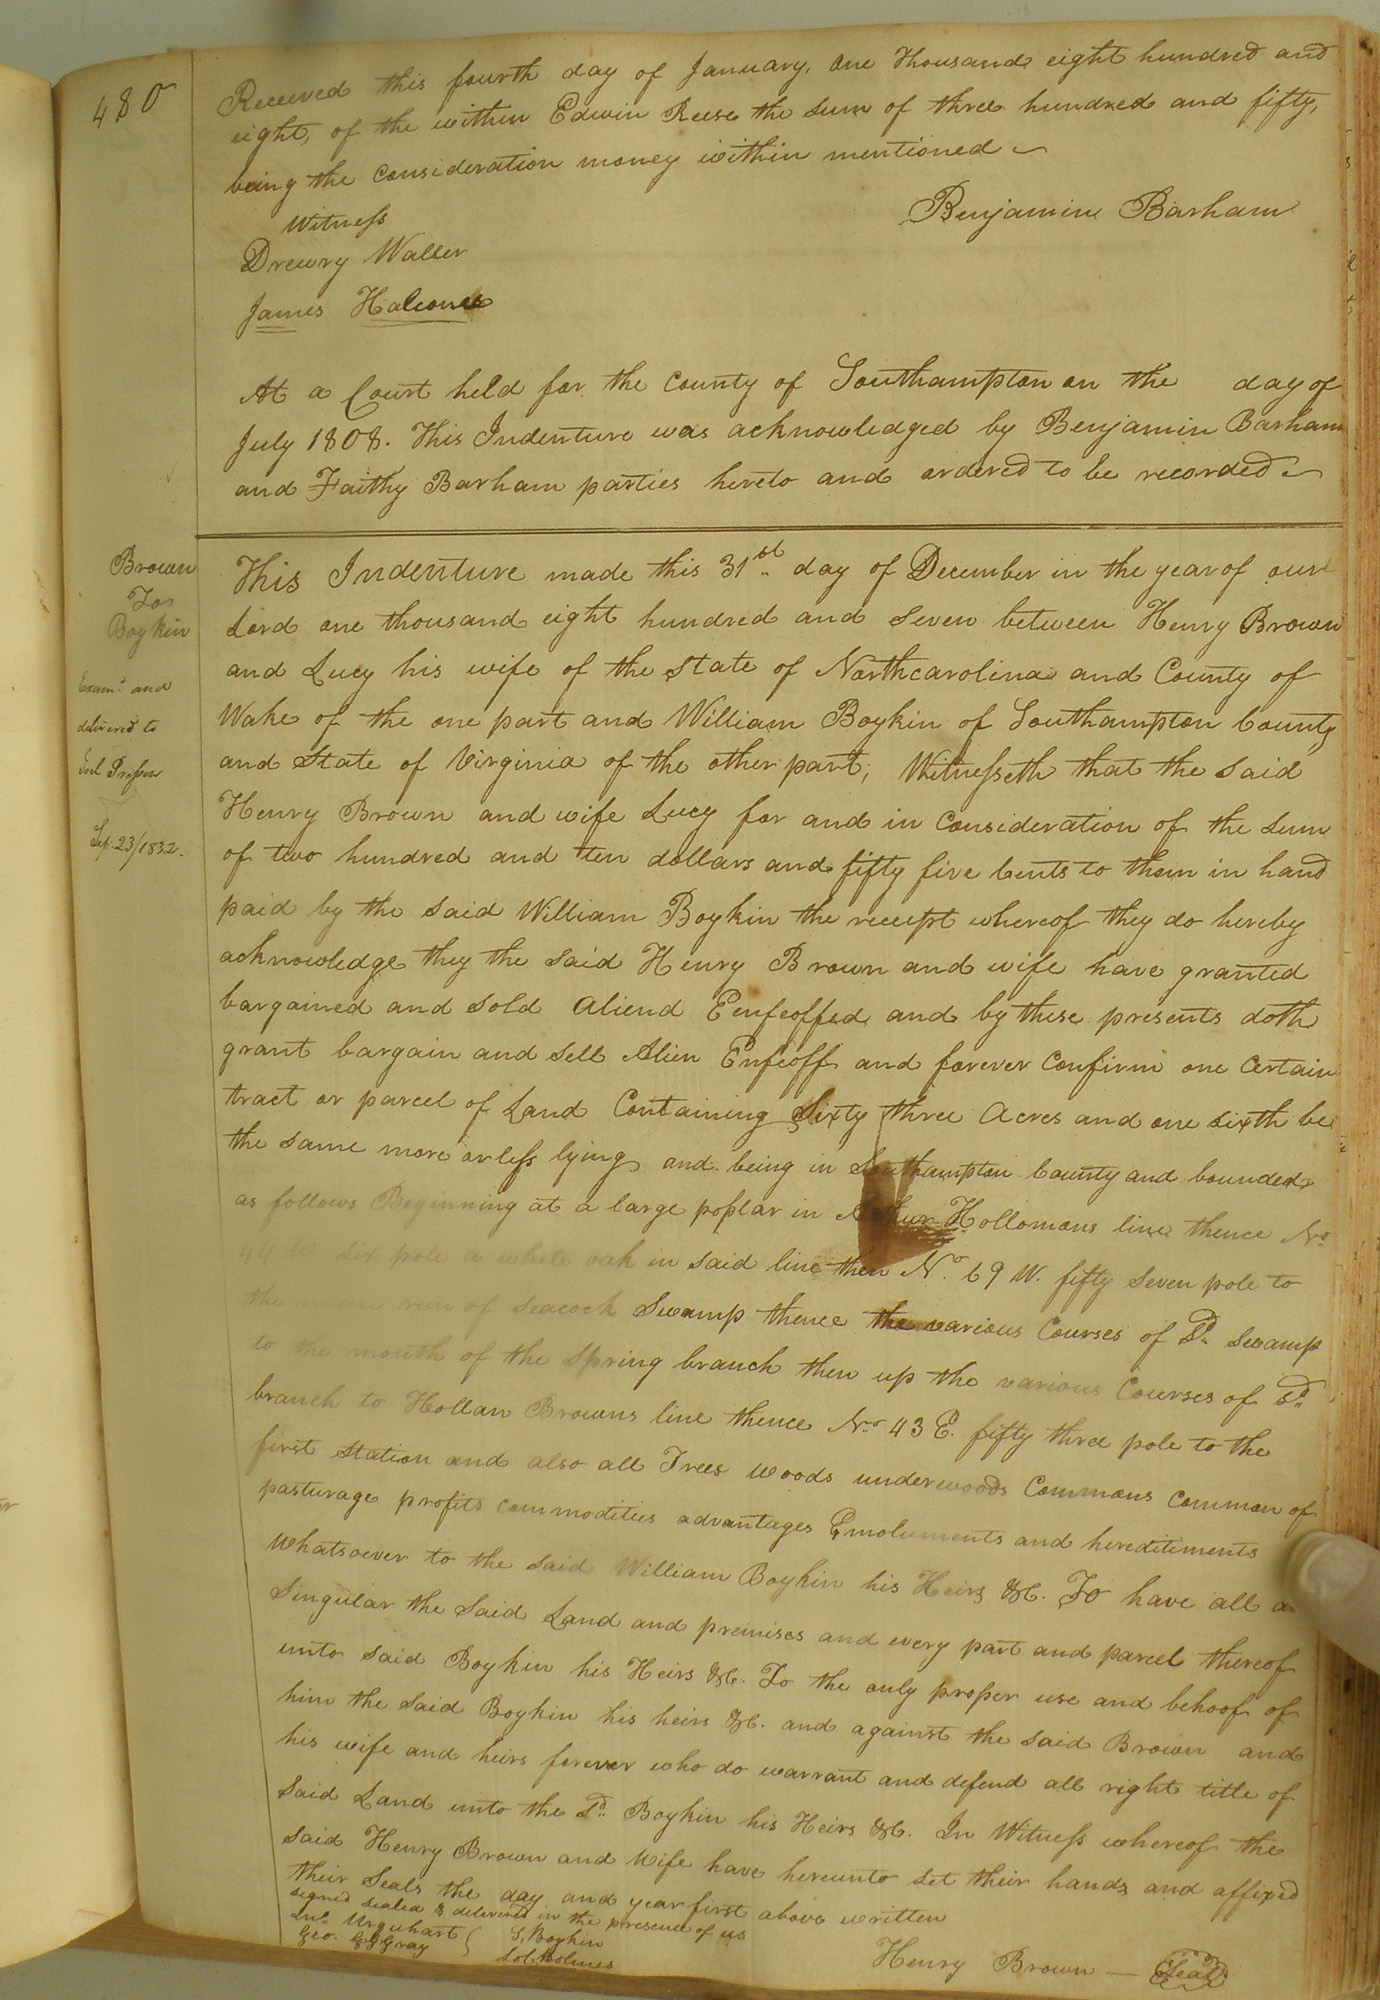 480
Received this fourth day of January, one thousand eight hundred and
eight, of the within Edwin Reese the sum of three hundred and fifty,
being the consideration money within mentioned
Benjamin Barham
Witness
Drewry Waller
James Halcome
At a Court held for the County of Southampton on the day of
July 1808. This Indenture was acknowledged by Benjamin Barham
and Faithy Barham parties hereto and ordered to be recorded
Brown
To
Boykin
Exam.d and
delivered to
Sep. 23/1832.
This Indenture made this 31st day of December in the year of our
Lord one thousand eight hundred and seven between Henry Brown
and Lucy his wife of the State of Northcarolina and County of
Wake of the one part and William Boykin of Southampton County
and State of Virginia of the other part; Witnesseth that the said
Henry Brown and wife Lucy for and in Consideration of the sum
of two hundred and ten dollars and fifty five Cents to them in hand
paid by the said William Boykin the receipt whereof they do hereby
acknowledge they the said Henry Brown and wife have granted
bargained and sold aliend Eenfeoffed and by these presents doth
grant bargain and sell Alien Enfeoff and forever Confirm one Certain
tract or parcel of Land Containing Sixty three Acres and one sixth be
the same more or less lying and being in Southampton County and bounded
as follows Beginning at a large poplar in Arthur Hollomans line thence No
44 W six pole a white oak in said line then No. 69 W. fifty seven pole to
the main run of Seacock Swamp thence the various Courses of Sd. Swamp
to the mouth of the Spring branch then up the various Courses of Sd.
branch to Hollan Browns line thence No 43 E. fifty three pole to the
first Station and also all Trees woods underwoods Commons Common of
pasturage profits commodities advantages Emoluments and hereditiments
Whatsoever to the said William Boykin his Heirs &C. To have all a
Singular the Said Land and premises and every part and parcel thereof
unto said Boykin his Heirs &C. To the only proper use and behoof of
him the said Boykin his heirs &C. and against the said Brown and
his wife and heirs forever who do warrant and defend all right title of
Said Land unto the Sd. Boykin his Heirs &C. In Witness whereof the
said Henry Brown and Wife have hereunto set their hands and affixed
their Seals the day and year first above written
signed sealed & delivered in the presence of us
Jno. Urquhart S. Boykin
Geo. Gray Sol. Holmes
Henry Brown — Seal